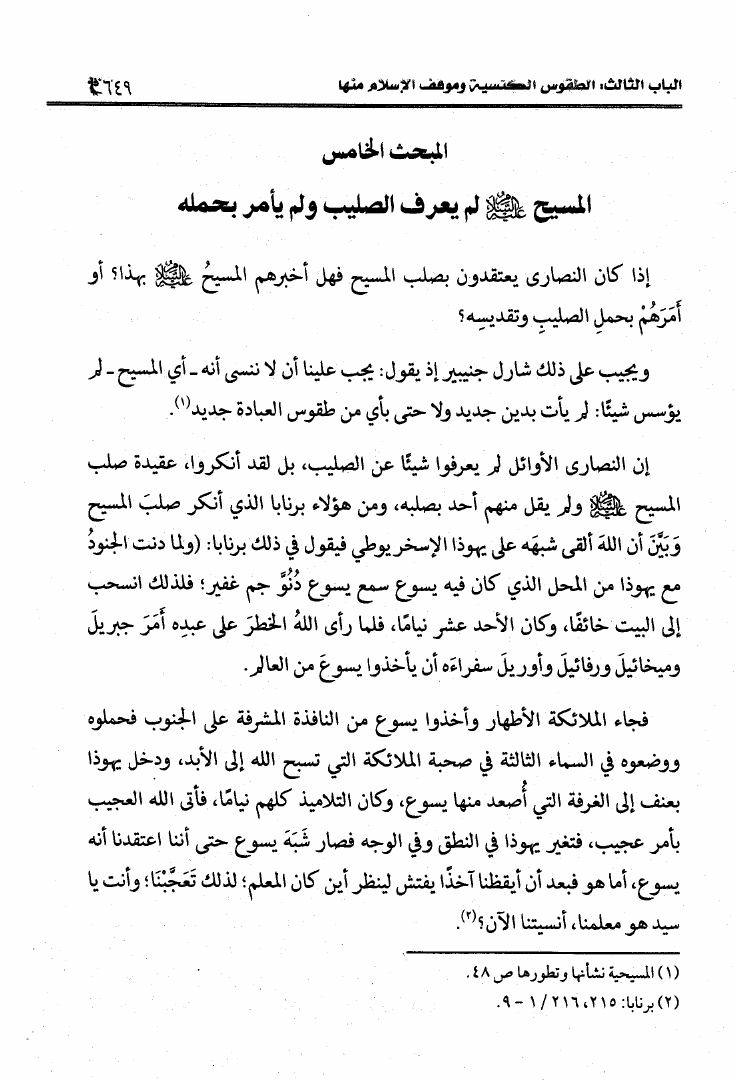 الباب الثالث: الطقوس الكنسية وموقف الإسلام منها ٦٤٩
المبحث الخامس
المسيح عليه السلام لم يعرف الصليب ولم يأمر بحمله
إذا كان النصارى يعتقدون بصلب المسيح فهل أخبرهم المسيحُ عليه السلام بهذا؟ أو
أَمَرَهُمْ بحملِ الصليبِ وتقديسِه؟
ويجيب على ذلك شارل جنيبير إذ يقول: يجب علينا أن لا ننسى أنه ـ أي المسيح ـ لم
يؤسس شيئًا: لم يأت بدين جديد ولا حتى بأي من طقوس العبادة جديد(١).
إن النصارى الأوائل لم يعرفوا شيئًا عن الصليب، بل لقد أنكروا، عقيدة صلب
المسيح عليه السلام ولم يقل منهم أحد بصلبه، ومن هؤلاء برنابا الذي أنكر صلبَ المسيح
وَبَيَّنَ أن اللهَ ألقى شبهَه على يهوذا الإسخريوطي فيقول في ذلك برنابا: (ولما دنت الجنودُ
مع يهوذا من المحل الذي كان فيه يسوع سمع يسوع دُنُوَّ جم غفير؛ فلذلك انسحب
إلى البيت خائفًا، وكان الأحد عشر نيامًا، فلما رأى اللهُ الخطرَ على عبدِه أَمَرَ جبريلَ
وميخائيلَ ورفائيلَ وأوريلَ سفراءَه أن يأخذوا يسوعَ من العالم.
فجاء الملائكة الأطهار وأخذوا يسوع من النافذة المشرفة على الجنوب فحملوه
ووضعوه في السماء الثالثة في صحبة الملائكة التي تسبح الله إلى الأبد، ودخل يهوذا
بعنف إلى الغرفة التي أُصعد منها يسوع، وكان التلاميذ كلهم نيامًا، فأتى الله العجيب
بأمر عجيب، فتغير يهوذا في النطق وفي الوجه فصار شَبَهَ يسوع حتى أننا اعتقدنا أنه
يسوع، أما هو فبعد أن أيقظنا آخذًا يفتش لينظر أين كان المعلم؛ لذلك تَعَجَّبْنَا؛ وأنت يا
سيد هو معلمنا، أنسيتنا الآن؟(٢).
(١) المسيحية نشأتها وتطورها ص ٤٨.
(٢) برنابا: ٢١٥، ٢١٦/ ١ – ٩.